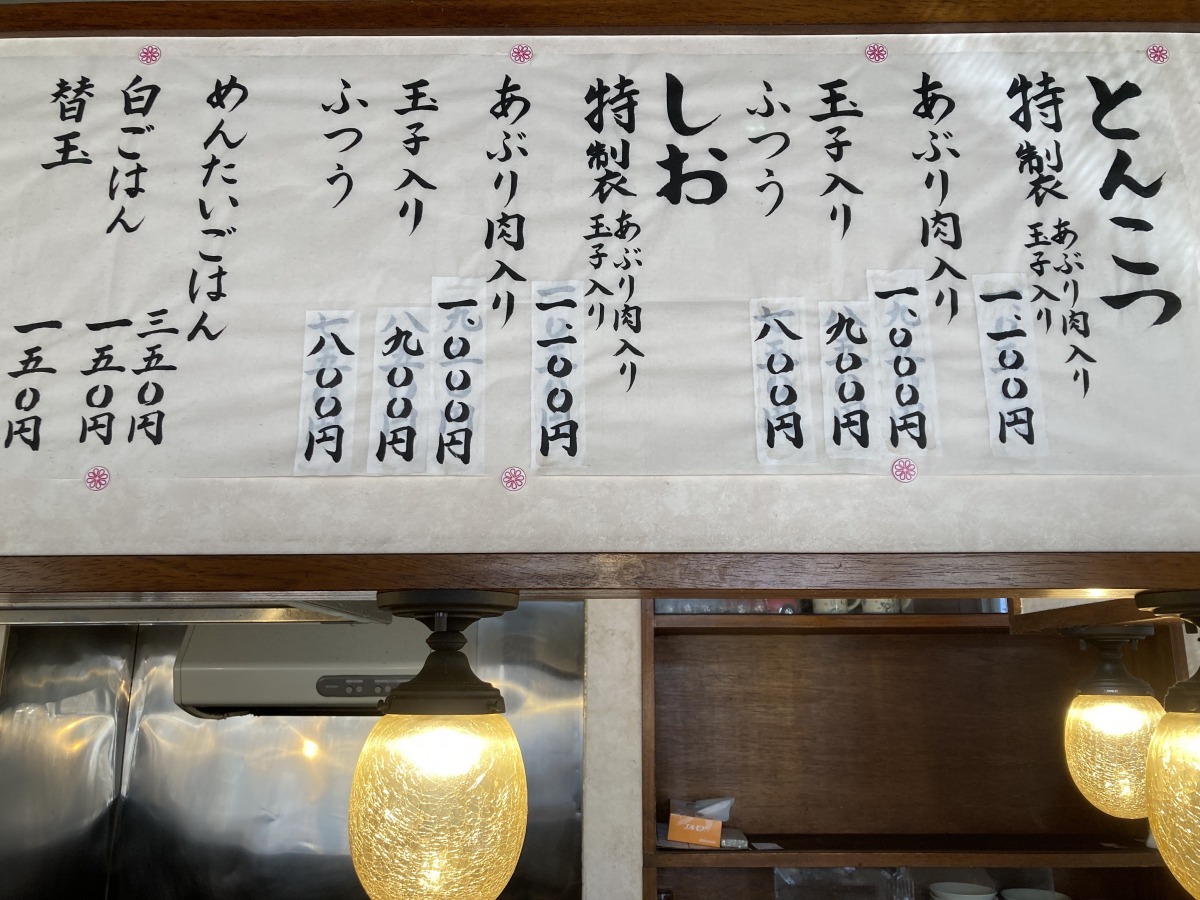 とんこつ
特製
あぶり肉入り
玉子入り
一、一〇〇円
あぶり肉入り
一、〇〇〇円
玉子入り
九〇〇円
ふつう
八〇〇円
しお
特製
あぶり肉入り
玉子入り
一、一〇〇円
あぶり肉入り
一、〇〇〇円
玉子入り
九〇〇円
ふつう
八〇〇円
めんたいごはん
三五〇円
白ごはん
一五〇円
替玉
一五〇円